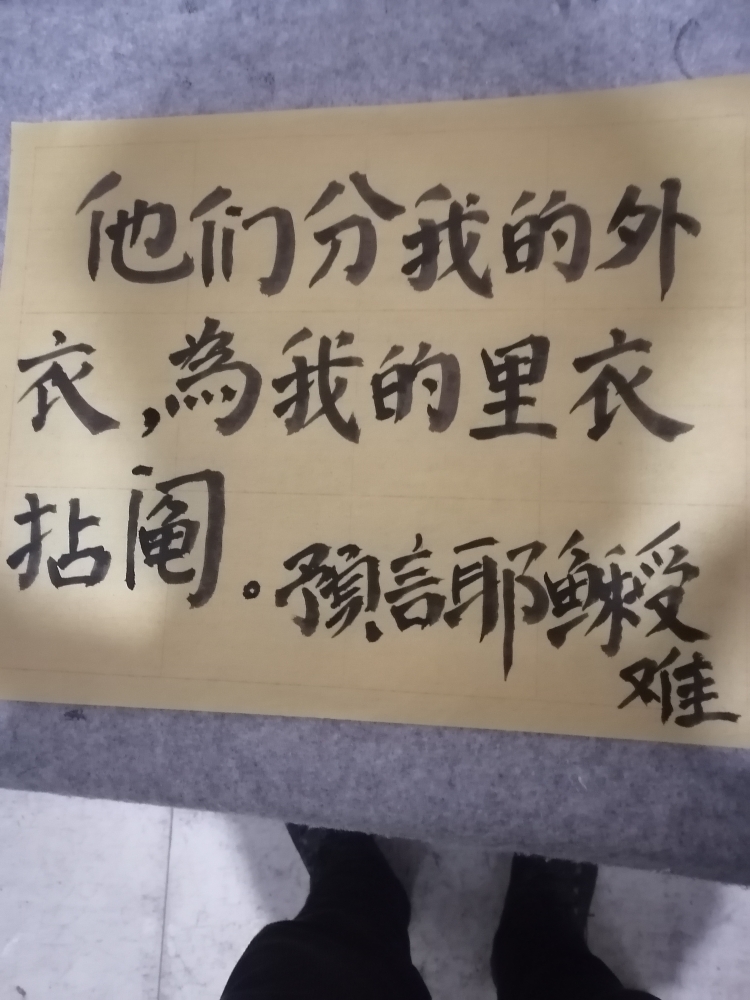 他们分我的外
衣,為我的里衣
拈阄。預言耶穌受
难